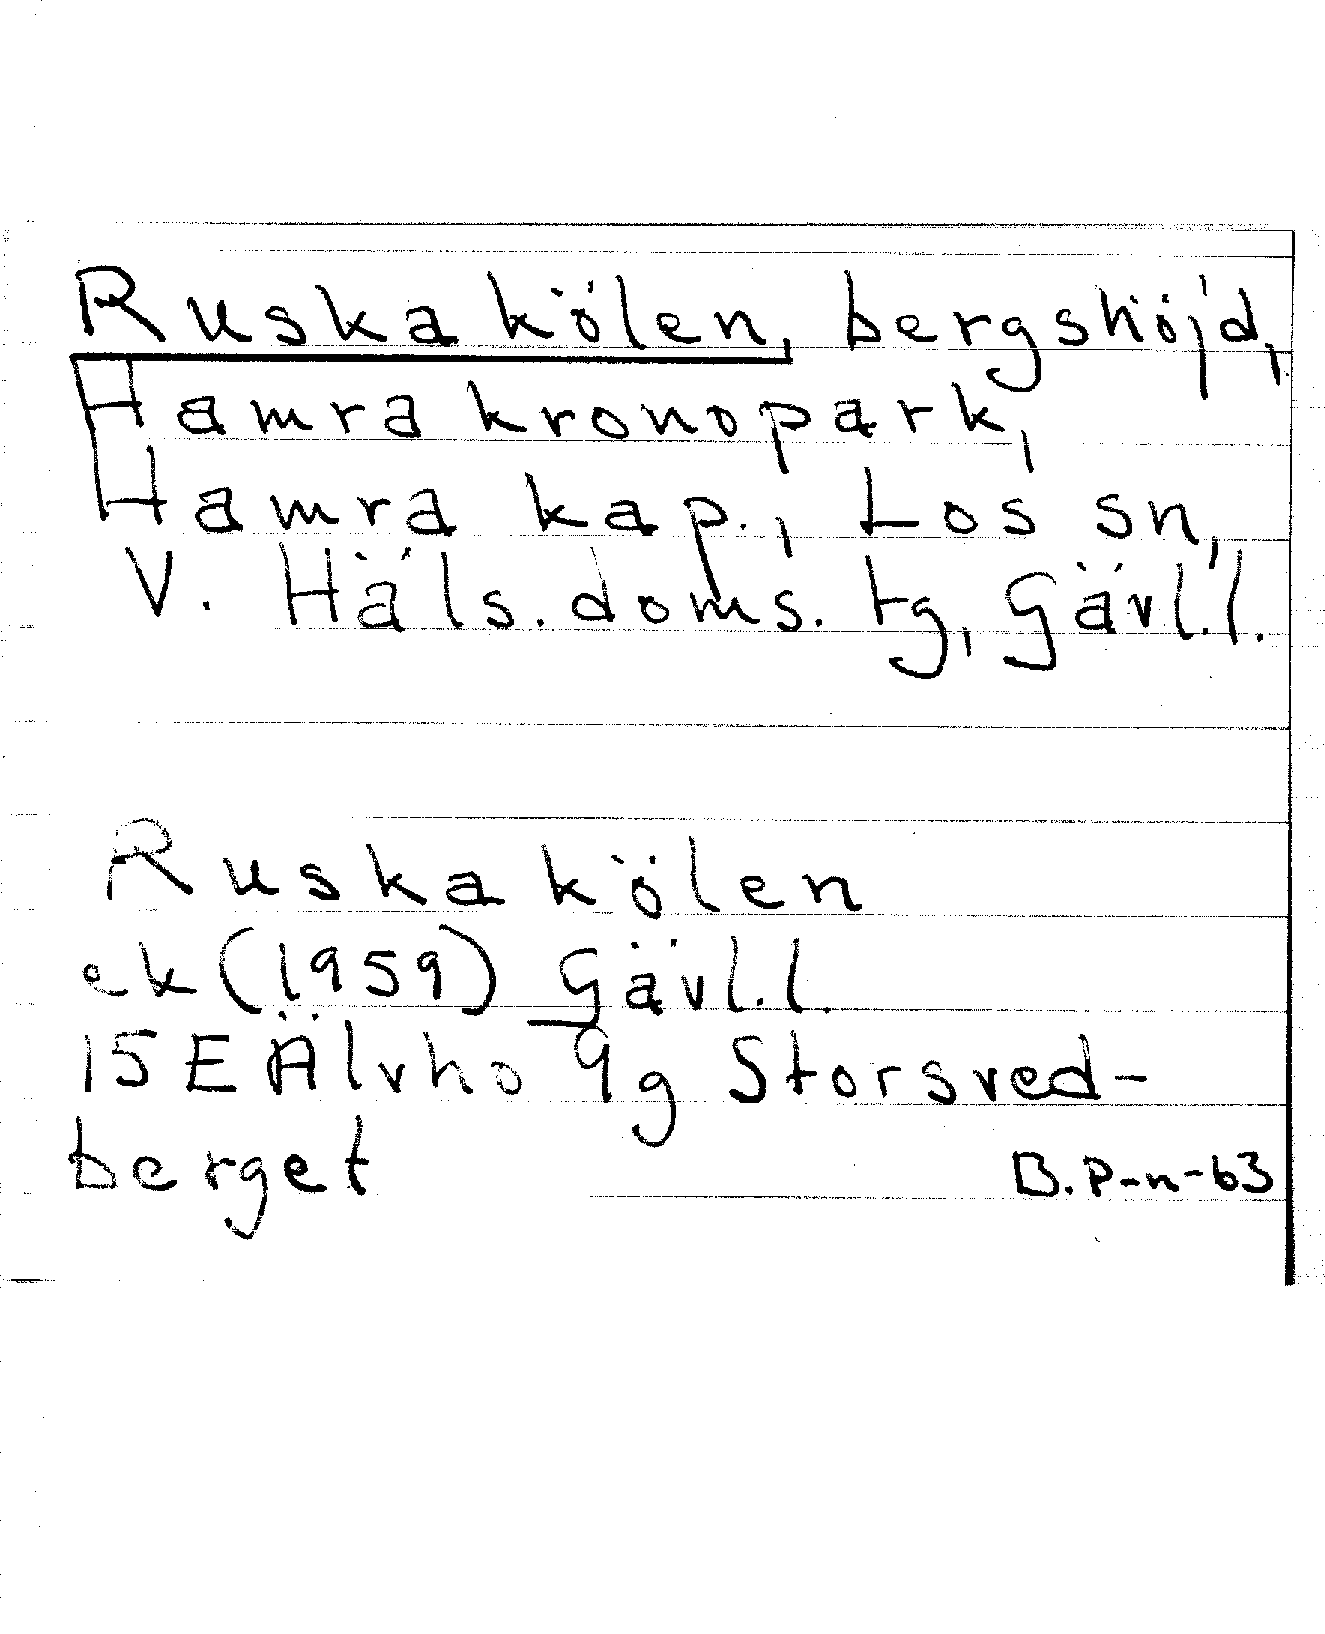 Ruskakölen, bergshöjd,
Hamra kronopark,
Hamra kap., Los sn,
V. Häls. doms. tg, Gävl.l.
Ruskakölen
ek (1959) Gävl.l.
15E Älvho 9g Storsved-
berget
B.P-n-63